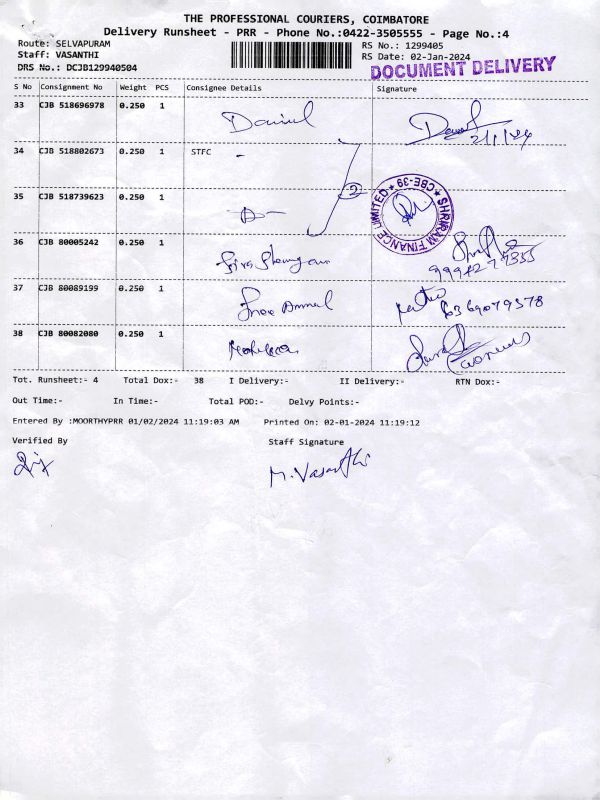 THE PROFESSIONAL COURIERS, COIMBATORE
Delivery Runsheet - PRR - Phone No.:0422-3505555 - Page No.:4
Route: SELVAPURAM RS No.: 1299405
Staff: VASANTHI RS Date: 02-Jan-2024
DRS No.: DCJB129940504 DOCUMENT DELIVERY
S No Consignment No Weight PCS Consignee Details Signature
33 CJB 518696978 0.250 1 Daniel 2/1/24
34 CJB 518802673 0.250 1 STFC -
2
35 CJB 518739623 0.250 1
SHRIRAM FINANCE LIMITED ★ CBE-39 ★
36 CJB 80005242 0.250 1
37 CJB 80089199 0.250 1 6369079578
38 CJB 80082080 0.250 1
Tot. Runsheet:- 4 Total Dox:- 38 I Delivery:- II Delivery:- RTN Dox:-
Out Time:- In Time:- Total POD:- Delvy Points:-
Entered By :MOORTHYPRR 01/02/2024 11:19:03 AM Printed On: 02-01-2024 11:19:12
Verified By Staff Signature
M. Vasanthi